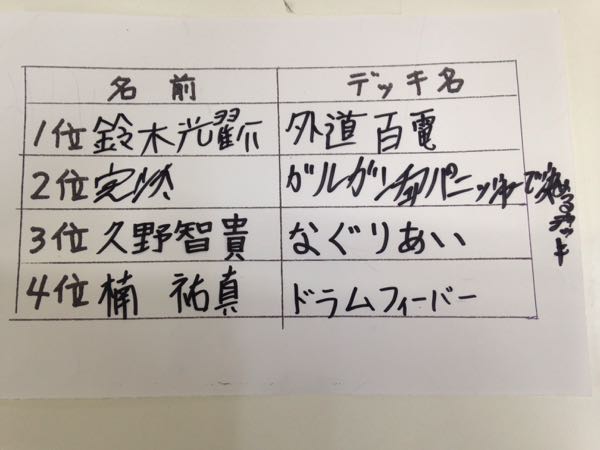 名前 デッキ名
1位 鈴木光 外道百電
2位 ガルガンパニッシャーで決めるデッキ
3位 久野智貴 なぐりあい
4位 楠 祐真 ドラムフィーバー